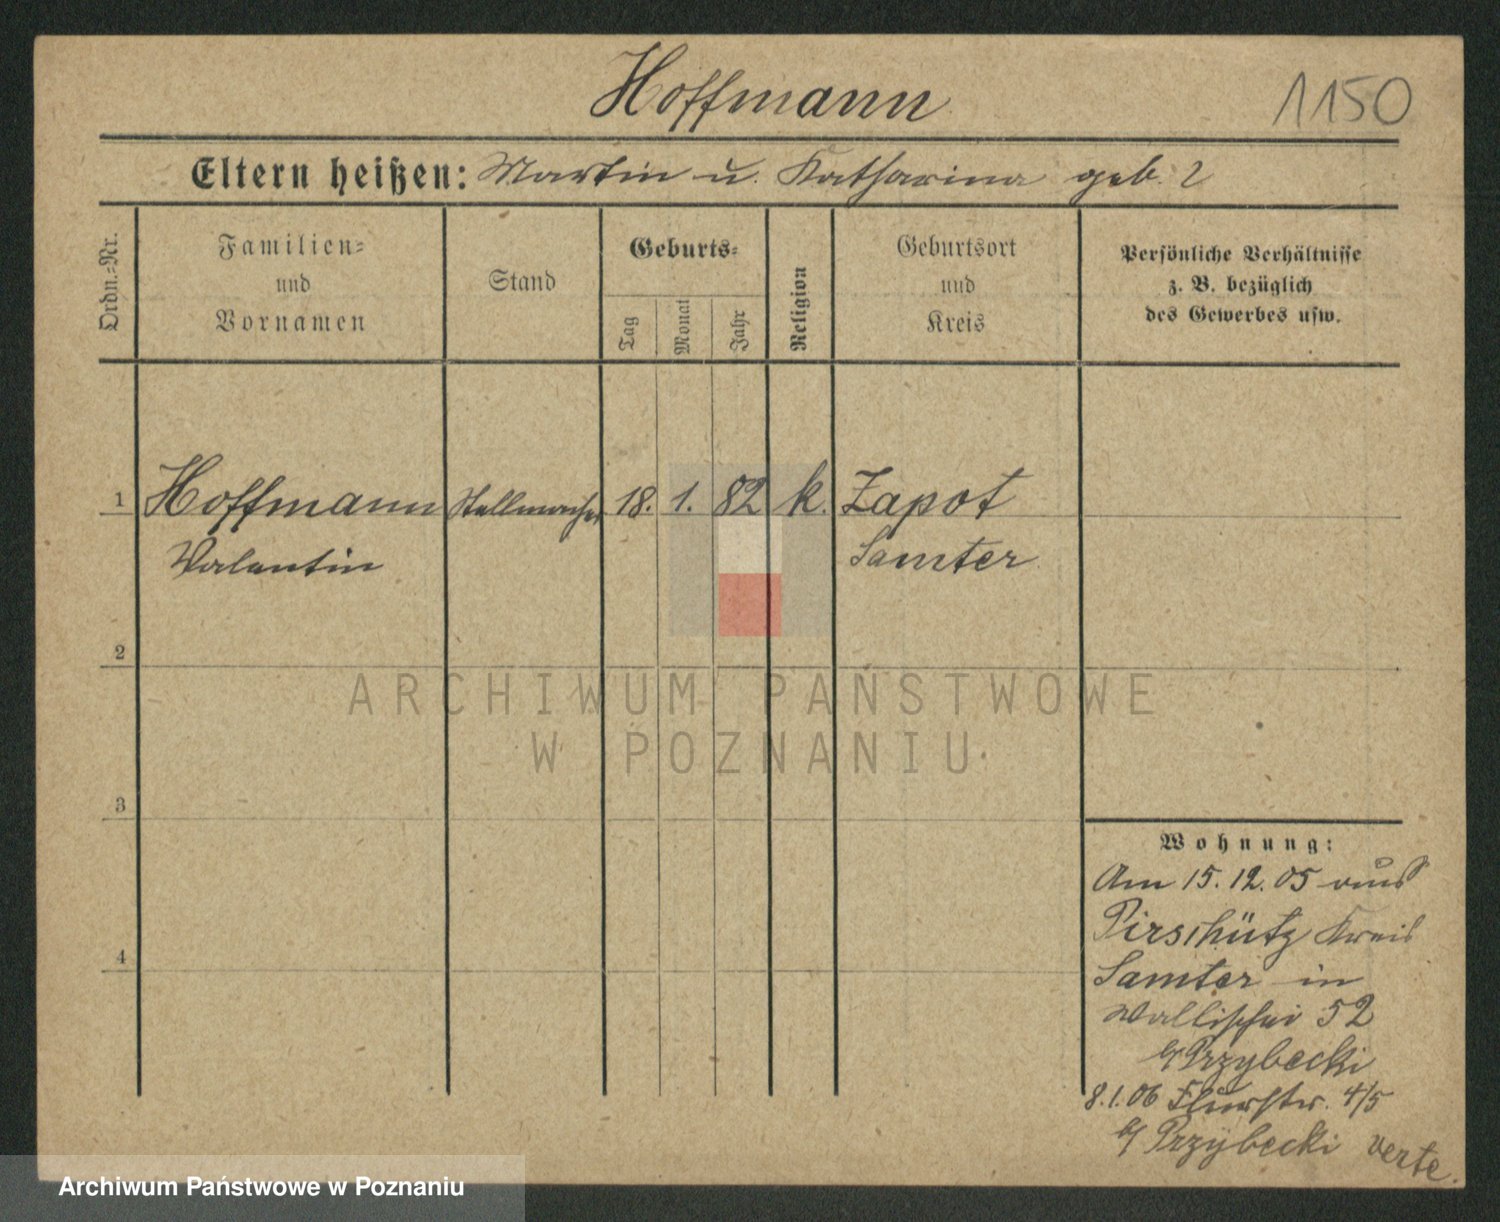 Hoffmann
1150
Eltern heißen: Martin u. Katharina geb. ?
Ordn.=Nr.
Familien=
und
Vornamen
Stand
Geburts=
Tag
Monat
Jahr
Religion
Geburtsort
und
Kreis
Persönliche Verhältnisse
z. B. bezüglich
des Gewerbes usw.
1 Hoffmann Stellmacher 18. 1. 82 k. Zapot
Valentin Samter
2
3
4
ARCHIWUM PAŃSTWOWE
W POZNANIU
Wohnung:
Am 15.12.05 aus
Pirschütz Kreis
Samter in
Wallischei 52
b/ Przybecki
8.1.06 Flurstr. 4/5
b/ Przybecki verte.
Archiwum Państwowe w Poznaniu